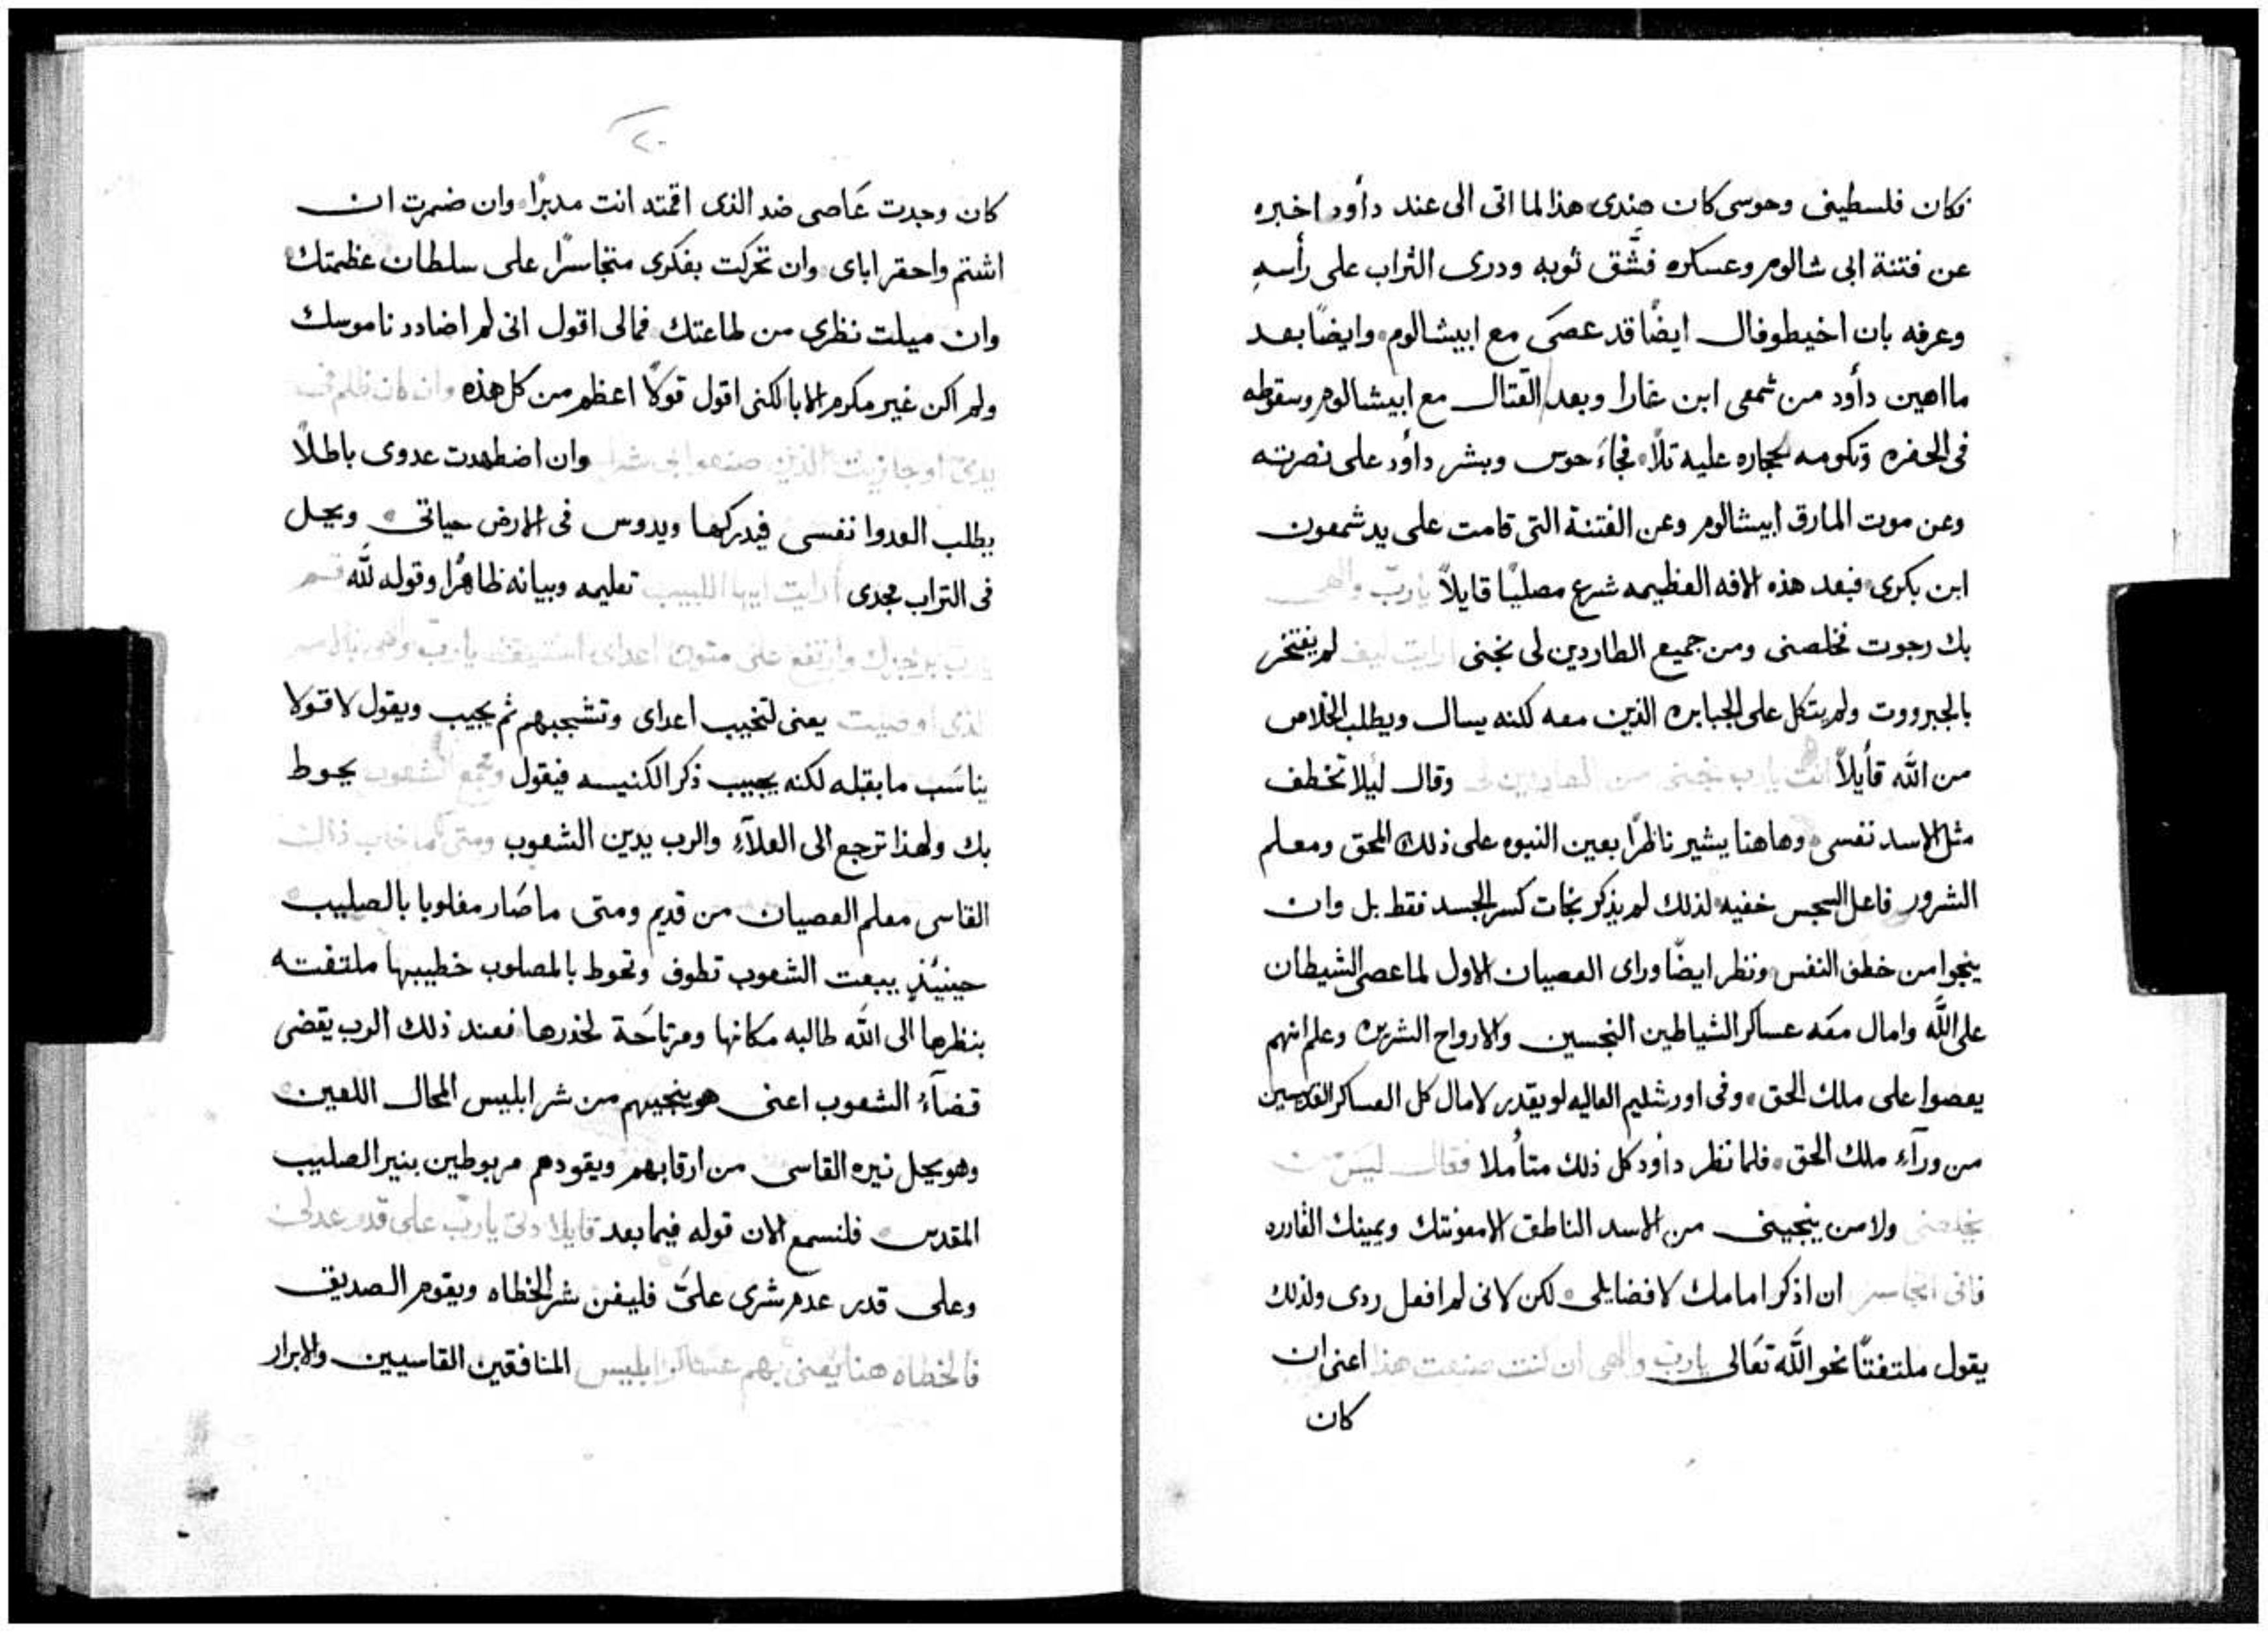 فكان فلسطينى وحوسى كان هندى هذا لما اتى الى عند داود اخبره
عن فتنة ابى شالوم وعسكره فشَّق ثوبه وذرى التراب على رأسهِ
وعرفه بان اخيطوفال ايضًا قد عصَى مع ابيشالوم وايضًا بعد
ما اهين دأود من شمعى ابن غارا وبعد القتال مع ابيشالوم وسقوطه
فى الحفره وتكومه الحجاره عليه تلًا فجاءَ حوسى وبشر دأود على نصرته
وعن موت المارق ابيشالوم وعن الفتنة التى قامت على يد شمعون
ابن بكرى فبعد هذه الافه العظيمه شرع مصليًا قايلًا ياربّ والهى
بك رجوت فخلصنى ومن جميع الطاردين لى نجنى ارايت كيف لم يفتخر
بالجبرووت ولم يتكل على الجبابره الذين معه لكنه يسال ويطلب الخلاص
من اللَّه قأيلًا انت يارب نجنى من الطاردين لى وقال ليلا تخطف
مثل الاسد نفسى وهاهنا يشير ناظرًا بعين النبوه على ذلك المحق ومعلم
الشرور فاعل السجس خفيه لذلك لم يذكر نجات كسر الجسد فقط بل وان
ينجوا من خطف النفس ونظر ايضًا وراى العصيان الاول لما عصى الشيطان
على اللَّه وامال معَه عساكر الشياطين النجسين والارواح الشريره وعلم انهم
يعصوا على ملك الحق وفى اورشليم العاليه لو يقدر لامال كل العساكر القديسين
من ورآءِ ملك الحق فلما نظر دأود كل ذلك متأملا فقال ليسَ من
يخلصنى ولا من ينجينى من الاسد الناطق الا معونتك ويمينك القادره
فانى اتجاسر ان اذكر امامك لا فضايلى لكن لانى لم افعل ردى ولذلك
يقول ملتفتًا نحو اللَّه تعَالى ياربّ والهى ان كنت صنعت هذا اعنى ان
كان
٢٠
كان وجدت عَاصى ضد الذى اقمته انت مدبرًا وان ضمرت ان
اشتم واحقر اباى وان تحركت بفكرى متجاسرًا على سلطان عظمتك
وان ميلت نظرى من طاعتك فمالى اقول انى لم اضادد ناموسك
ولم اكن غير مكرم الابا لكنى اقول قولًا اعظم من كل هذه وان كان ظلم فى
يدىّ او جازيت الذين صنعوا بى شرا وان اضطهدت عدوى باطلًا
يطلب العدوا نفسى فيدركها ويدوس فى الارض حياتى ويحل
فى التراب مجدى أرايت ايها اللبيب تعليمه وبيانه ظاهرًا وقوله للَّه قم
يارب برجزك وارتفع على متون اعداى استيقظ ياربّ والهى بالامر
الذى اوصيت يعنى لتخيب اعداى وتشجبهم ثم يجيب ويقول لا قولا
يناسَب ما بقبله لكنه يجيب ذكر الكنيسه فيقول وتجمع الشعوب يحوط
بك ولهذا ترجع الى العلآءِ والرب يدين الشعوب ومتى ما خاب ذالك
القاسى معلم العصيان من قديم ومتى ما صَار مغلوبا بالصليب
حينيئذٍ يبعت الشعوب تطوف وتحوط بالمصلوب خطيبها ملتفته
بنظرها الى اللَّه طالبه مكانها ومرتاحَة لخدرها فعند ذلك الرب يقضى
قضآءُ الشعوب اعنى هو ينجيهم من شر ابليس المحال اللعين
وهو يحل نيره القاسى من ارقابهم ويقودهم مربوطين بنير الصليب
المقدس فلنسمع الان قوله فيما بعد قايلا دنى ياربّ على قدر عدلى
وعلى قدر عدم شرى علىَّ فليفن شر الخطاه ويقوم الصديق
فالخطاه هنا يعنى بهم عساكر ابليس المنافقين القاسيين والابرار